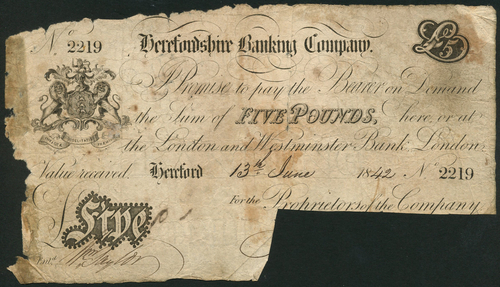 No. 2219 Herefordshire Banking Company. £5
I Promise to pay the Bearer on Demand
the Sum of FIVE POUNDS, here, or at
the London and Westminster Bank London
Value received Hereford 13th June 1842 No. 2219
For the Proprietors of the Company.
£ Five
Ent. Wm Taylor